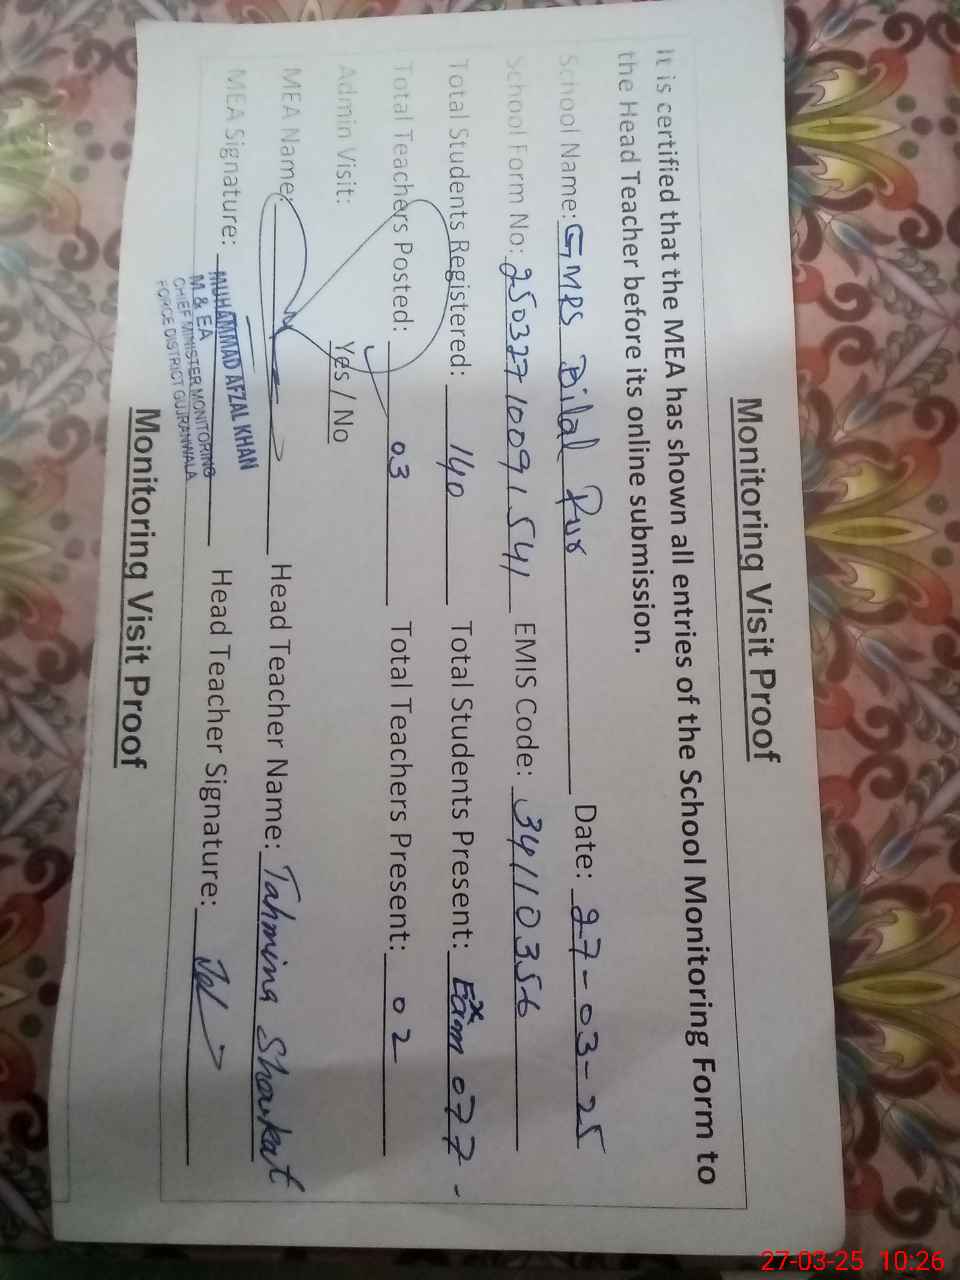 Monitoring Visit Proof
It is certified that the MEA has shown all entries of the School Monitoring Form to
the Head Teacher before its online submission.
School Name: GMPS Bilal Pur Date: 27-03-25
School Form No: 25032710091541 EMIS Code: 34110356
Total Students Registered: 140 Total Students Present: Exam 077-
Total Teachers Posted: 03 Total Teachers Present: 02
Admin Visit: Yes / No
MEA Name: Head Teacher Name: Tahmina Shaukat
MEA Signature: Head Teacher Signature:
MUHAMMAD AFZAL KHAN
M & EA
CHIEF MINISTER MONITORING
FORCE DISTRICT GUJRANWALA
Monitoring Visit Proof
27-03-25 10:26